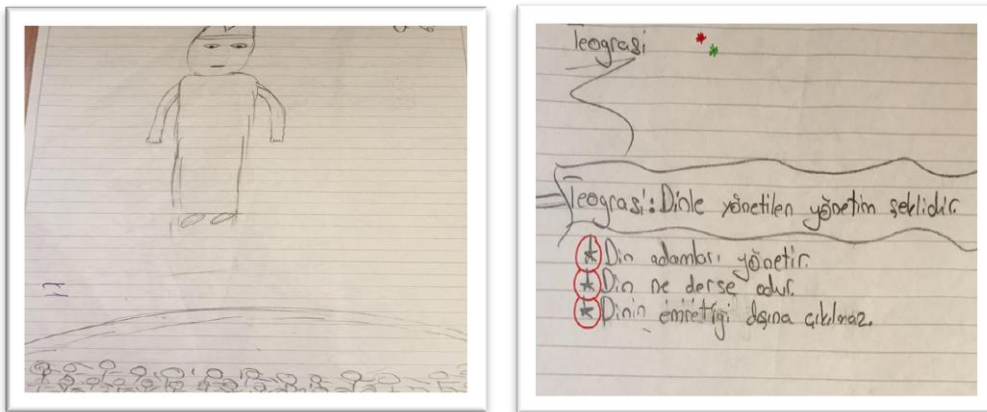 Teograsi
Teograsi: Dinle yönetilen yönetim şeklidir.
* Din adamları yönetir.
* Din ne derse odur.
* Dinin emrettiği dışına çıkılmaz.